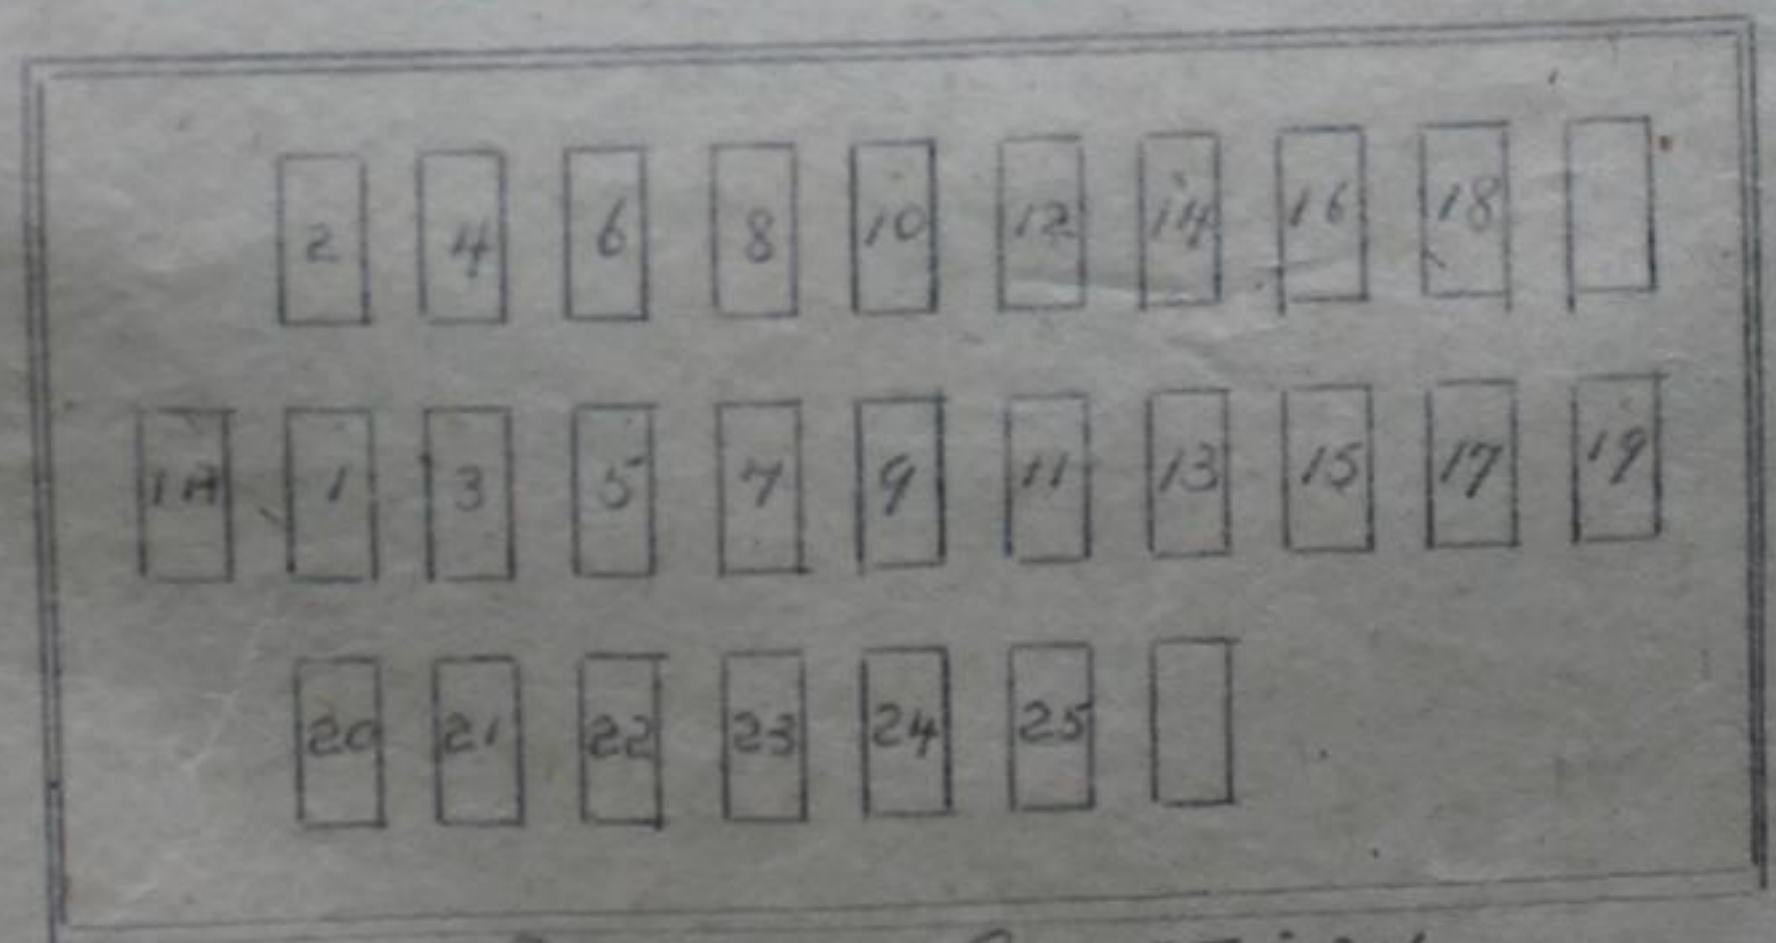 2 4 6 8 10 12 14 16 18
1A 1 3 5 7 9 11 13 15 17 19
20 21 22 23 24 25